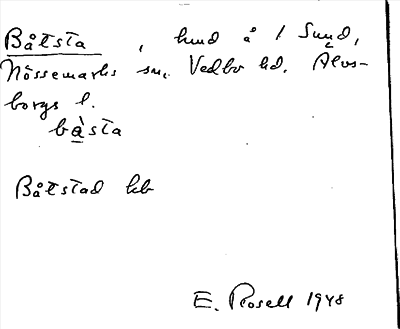 Båtsta, hmd å 1 Sund,
Nössemarks sn. Vedbo hd. Älvs-
borgs l.
bàsta
Båtstad kb
E. Rosell 1948